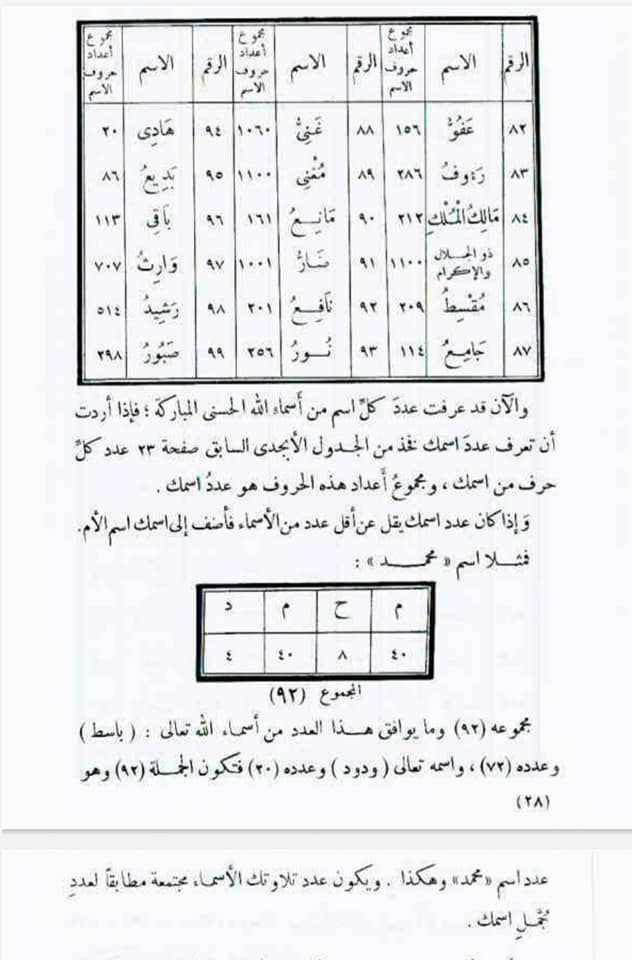 الرقم الاسم مجموع أعداد حروف الاسم الرقم الاسم مجموع أعداد حروف الاسم الرقم الاسم مجموع أعداد حروف الاسم
٨٢ عَفُوٌّ ١٥٦ ٨٨ غَنِىٌّ ١٠٦٠ ٩٤ هَادِى ٢٠
٨٣ رَءوفُ ٢٨٦ ٨٩ مُغْنِى ١١٠٠ ٩٥ بَدِيعُ ٨٦
٨٤ مَالِكُ الْمُلْكِ ٢١٢ ٩٠ مَانِعُ ١٦١ ٩٦ بَاقِى ١١٣
٨٥ ذو الجلال والإكرام ١١٠٠ ٩١ ضَارُّ ١٠٠١ ٩٧ وَارِثُ ٧٠٧
٨٦ مُقْسِطُ ٢٠٩ ٩٢ نَافِعُ ٢٠١ ٩٨ رَشِيدُ ٥١٤
٨٧ جَامِعُ ١١٤ ٩٣ نُورُ ٢٥٦ ٩٩ صَبُورُ ٢٩٨
والآن قد عرفت عددَ كلِّ اسم من أسماء الله الحسنى المباركة ؛ فإذا أردت
أن تعرف عددَ اسمك فخذ من الجدول الأبجدى السابق صفحة ٢٣ عدد كلِّ
حرف من اسمك ، ومجموعُ أعداد هذه الحروف هو عددُ اسمك .
وَإذا كان عدد اسمك يقل عن أقل عدد من الأسماء فأضف إلى اسمك اسم الأم.
فمثلا اسم « محمد » :
م ح م د
٤٠ ٨ ٤٠ ٤
المجموع (٩٢)
مجموعه (٩٢) وما يوافق هذا العدد من أسماء الله تعالى : ( باسط )
وعدده (٧٢) ، واسمه تعالى ( ودود ) وعدده (٢٠) فتكون الجملة (٩٢) وهو
(٢٨)
عدد اسم «محمد» وهكذا . ويكون عدد تلاوتك الأسماء مجتمعة مطابقاً لعددِ
مُجْمَلِ اسمك .